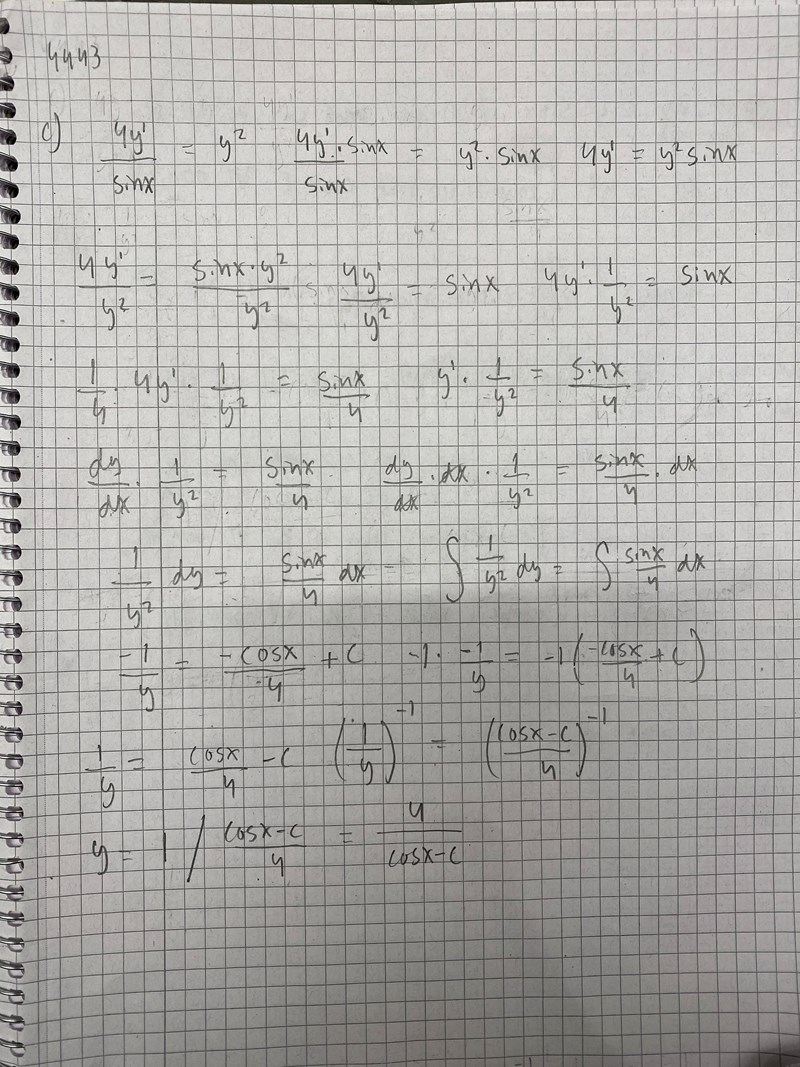 4443
c) 4y'/sinx = y² 4y'·sinx/sinx = y²·sinx 4y' = y²sinx
4y'/y² = sinx·y²/y² 4y'/y² = sinx 4y'·1/y² = sinx
1/4·4y'·1/y² = sinx/4 y'·1/y² = sinx/4
dy/dx·1/y² = sinx/4 dy/dx·dx·1/y² = sinx/4·dx
1/y² dy = sinx/4 dx ∫ 1/y² dy = ∫ sinx/4 dx
-1/y = -cosx/4 + C -1·-1/y = -1(-cosx/4 + C)
1/y = cosx/4 - C (1/y)⁻¹ = (cosx-C/4)⁻¹
y = 1/cosx-C/4 = 4/cosx-C